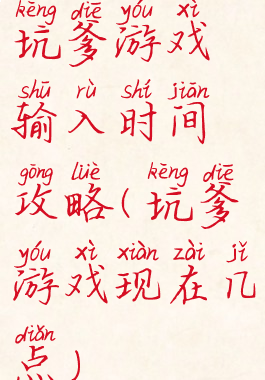 kēng diē yóu xì
坑爹游戏
shū rù shí jiān
输入时间
gōng lüè kēng diē
攻略(坑爹
yóu xì xiàn zài jǐ
游戏现在几
diǎn
点)